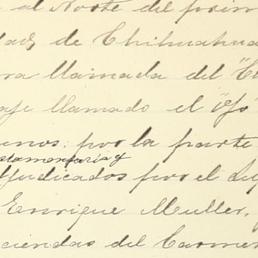 al Norte del prim
dad de Chihuahua
ra llamada del "C
aje llamado el "Ojo
unos: por la parte
stamentaria y
djudicados por el Ly
Enrique Muller,
ciendas del Carmen